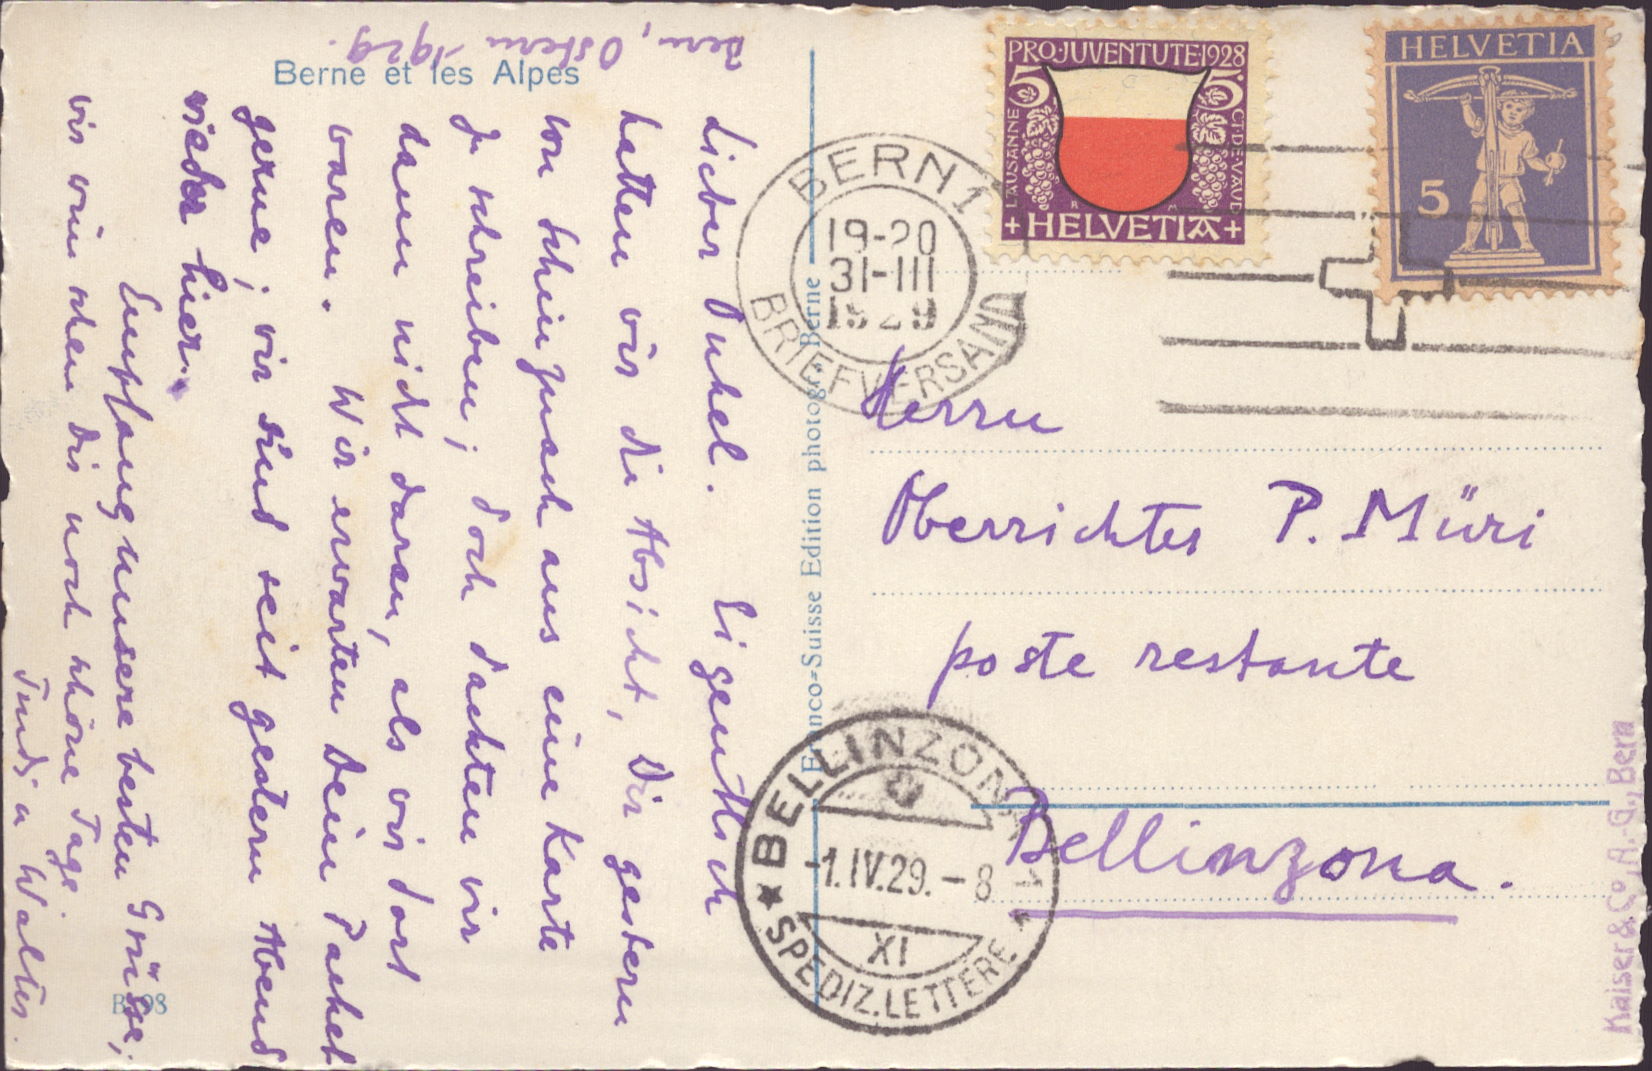 Berne et les Alpes
Bern, Ostern 1929.
Lieber Onkel. Eigentlich
hatten wir die Absicht, Dir gestern
von Schinznach aus eine Karte
zu schreiben; doch dachten wir
dann nicht daran, als wir dort
waren. Wir erwarten Dein Packet
gerne; wir sind seit gestern Abend
wieder hier.
Empfang unsere besten Grüsse;
wir wünschen Dir noch schöne Tage
u Walter.
B 98
Franco-Suisse Edition photogr. Berne
PRO JUVENTUTE 1928
5 5
LAUSANNE
CT. DE VAUD
+ HELVETIA +
HELVETIA
5
BERN 1
19-20
31-III
1929
BRIEFVERSAND
Herrn
Oberrichter P. Müri
poste restante
Bellinzona.
BELLINZONA 1
-1.IV.29.-8
XI
SPEDIZ. LETTERE
Kaiser & Co., A.-G., Bern